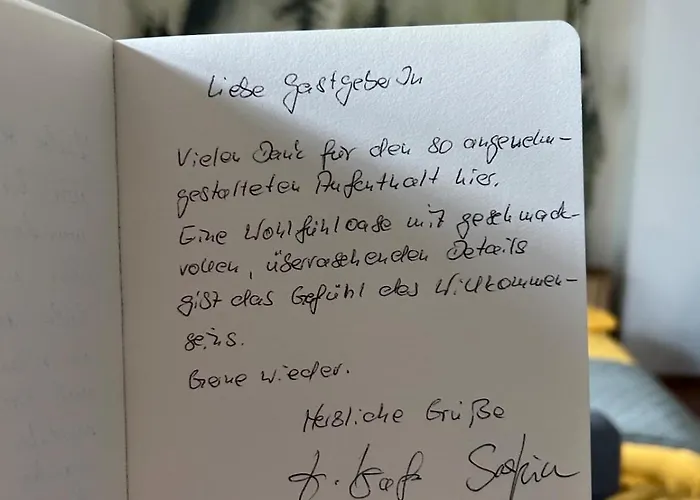 Liebe GastgeberIn
Vielen Dank für den so angenehm-
gestalteten Aufenthalt hier.
Eine Wohlfühloase mit geschmack-
vollen, überraschenden Details
gibt das Gefühl des Willkommen-
seins.
Gerne wieder.
Herzliche Grüße